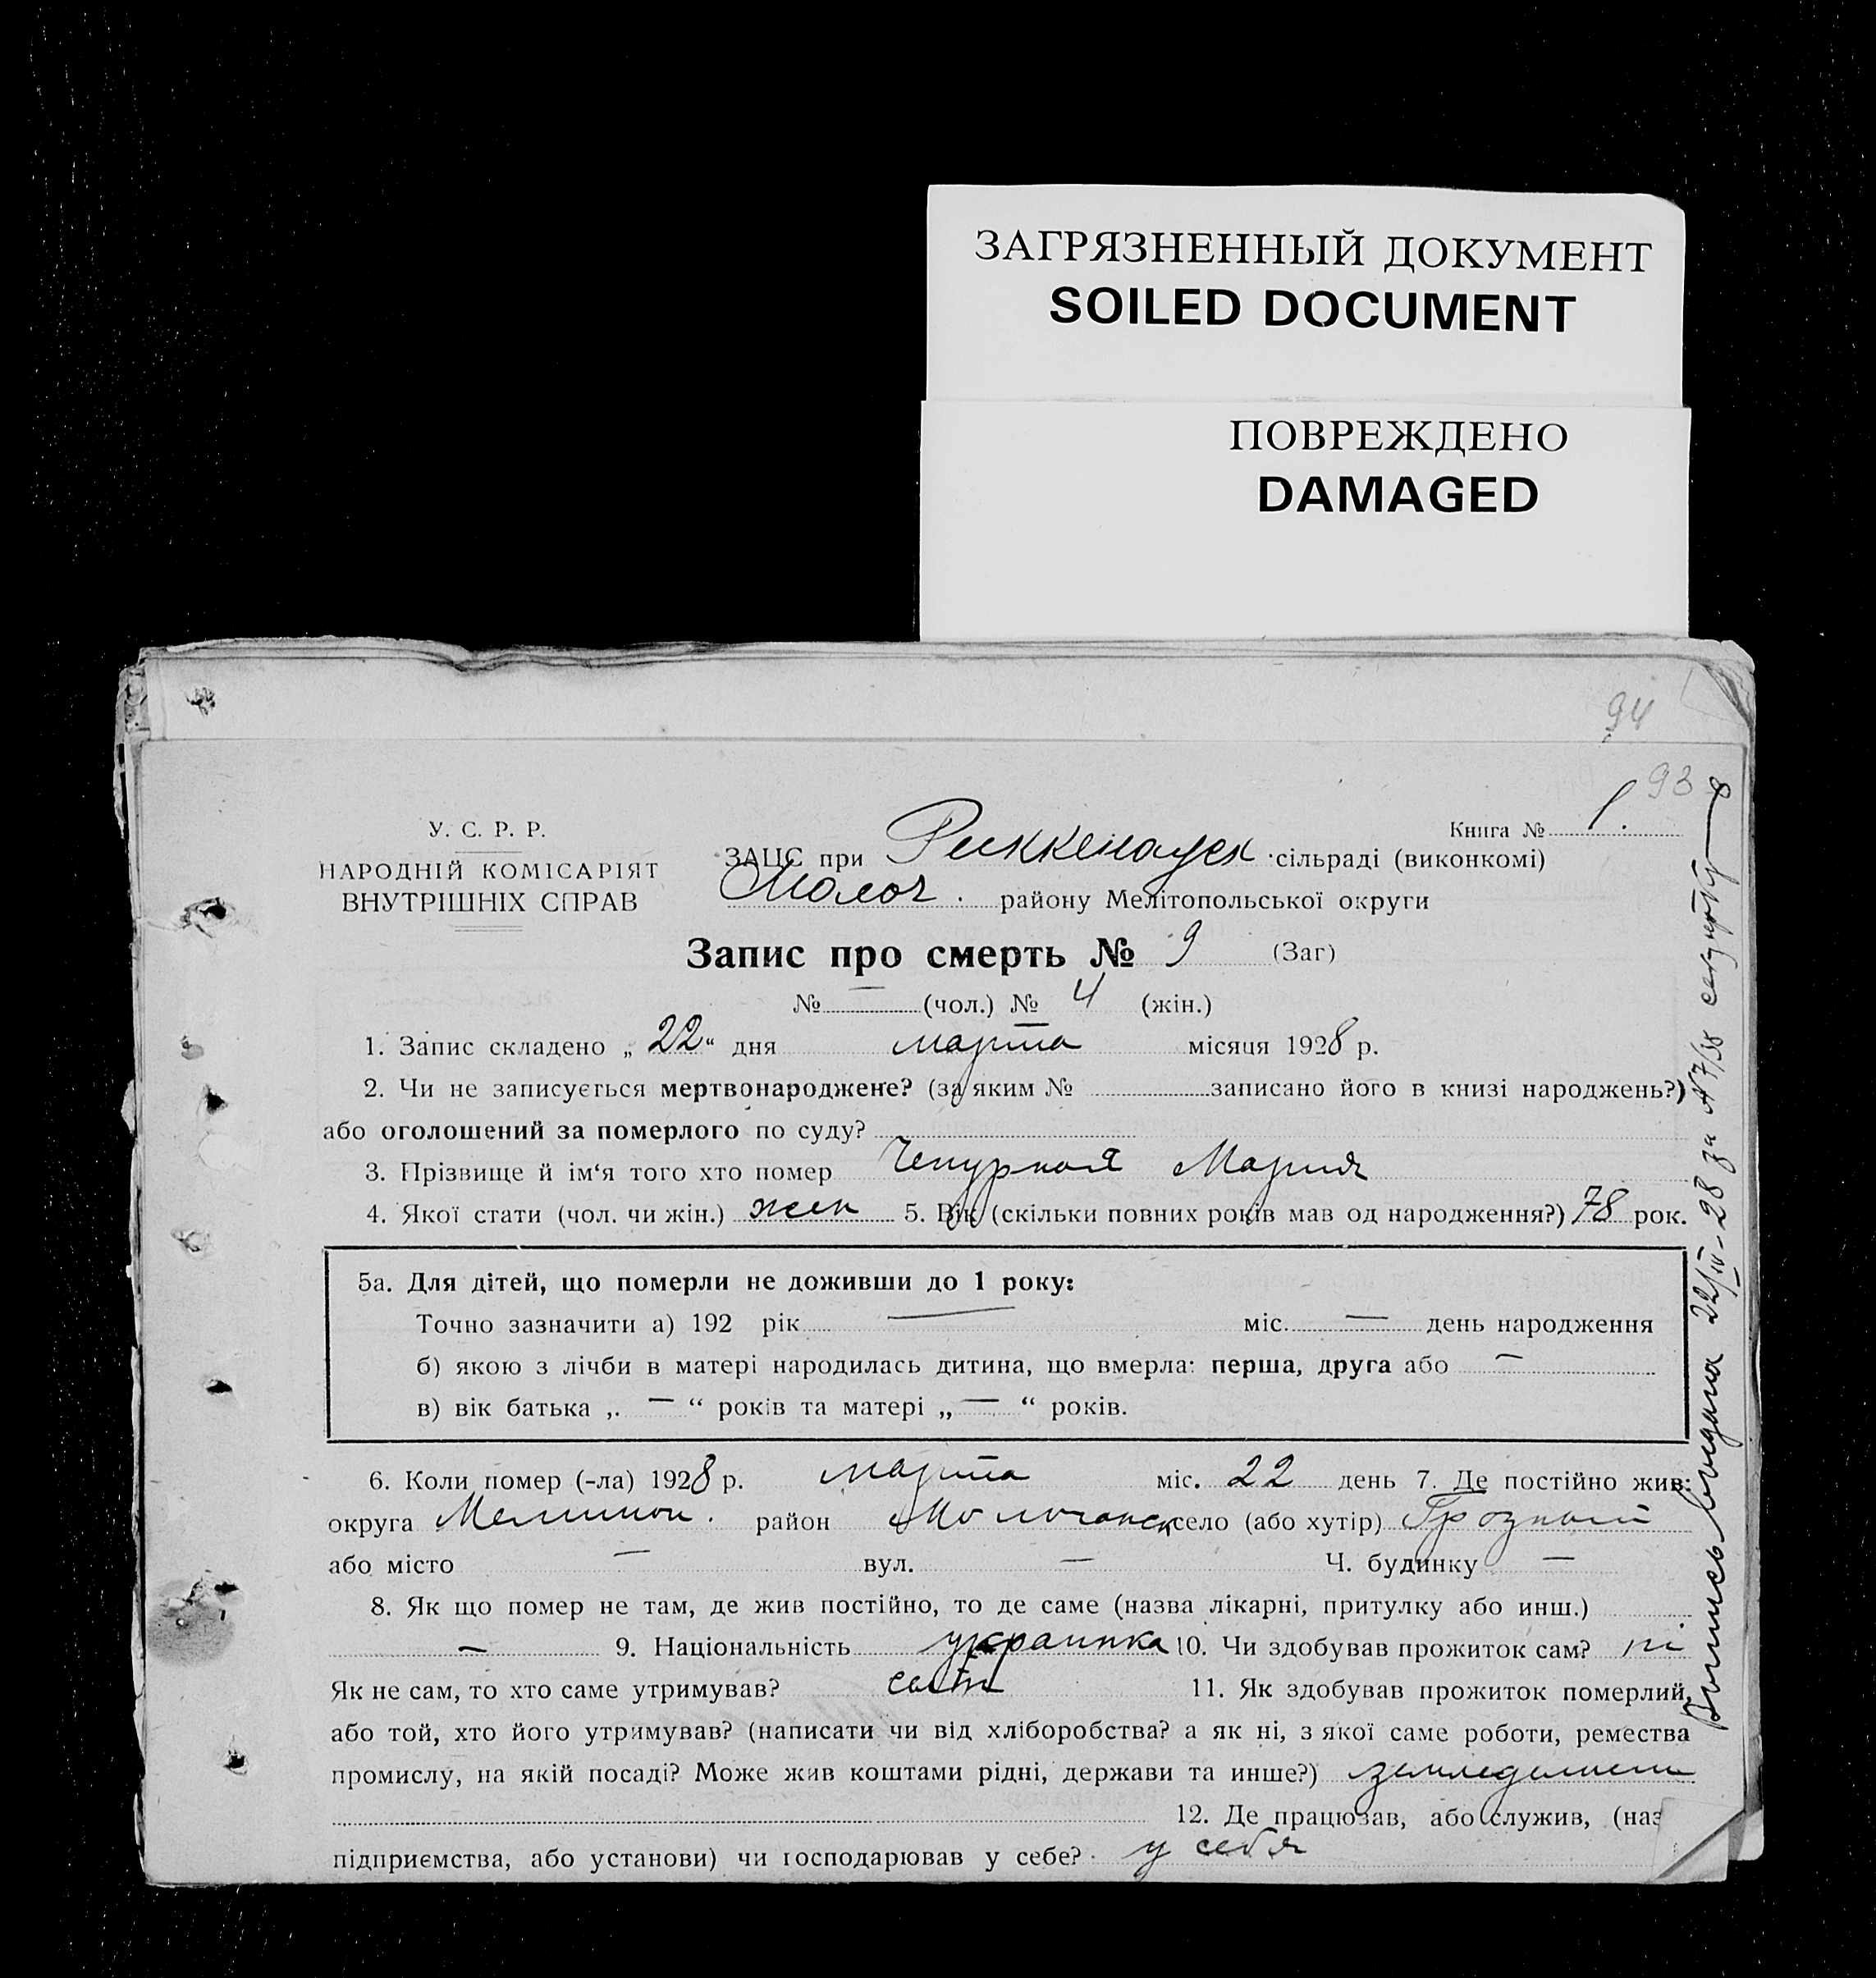 ЗАГРЯЗНЕННЫЙ ДОКУМЕНТ
SOILED DOCUMENT
ПОВРЕЖДЕНО
DAMAGED
94
93
У. С. Р. Р.
НАРОДНІЙ КОМІСАРІЯТ
ВНУТРІШНІХ СПРАВ
Книга № 1.
ЗАЦС при Риккенауск сільраді (виконкомі)
Молоч. району Мелітопольської округи
Запис про смерть № 9 (Заг)
№ — (чол.) № 4 (жін.)
1. Запис складено „ 22 “ дня марта місяця 1928 р.
2. Чи не записується мертвонароджене? (за яким № записано його в книзі народжень?)
або оголошений за померлого по суду?
3. Прізвище й ім‘я того хто помер Чепурная Мария
4. Якої стати (чол. чи жін.) жен 5. Вік (скільки повних років мав од народження?) 78 рок.
5а. Для дітей, що померли не доживши до 1 року:
Точно зазначити а) 192 рік — міс. — день народження
б) якою з лічби в матері народилась дитина, що вмерла: перша, друга або —
в) вік батька „. — “ років та матері „ — “ років.
6. Коли помер (-ла) 1928 р. марта міс. 22 день 7. Де постійно жив:
округа Мелитоп. район Молочанск село (або хутір) Грозный
або місто — вул. — Ч. будинку —
8. Як що помер не там, де жив постійно, то де саме (назва лікарні, притулку або инш.)
— 9. Національність украинка 10. Чи здобував прожиток сам? ні
Як не сам, то хто саме утримував? 11. Як здобував прожиток померлий,
або той, хто його утримував? (написати чи від хліборобства? а як ні, з якої саме роботи, ремества
промислу, на якій посаді? Може жив коштами рідні, держави та инше?)
12. Де працював, або служив, (наз
підприємства, або установи) чи господарював у себе? у себя
Выпись выдана 22/IV-28 за №7/38